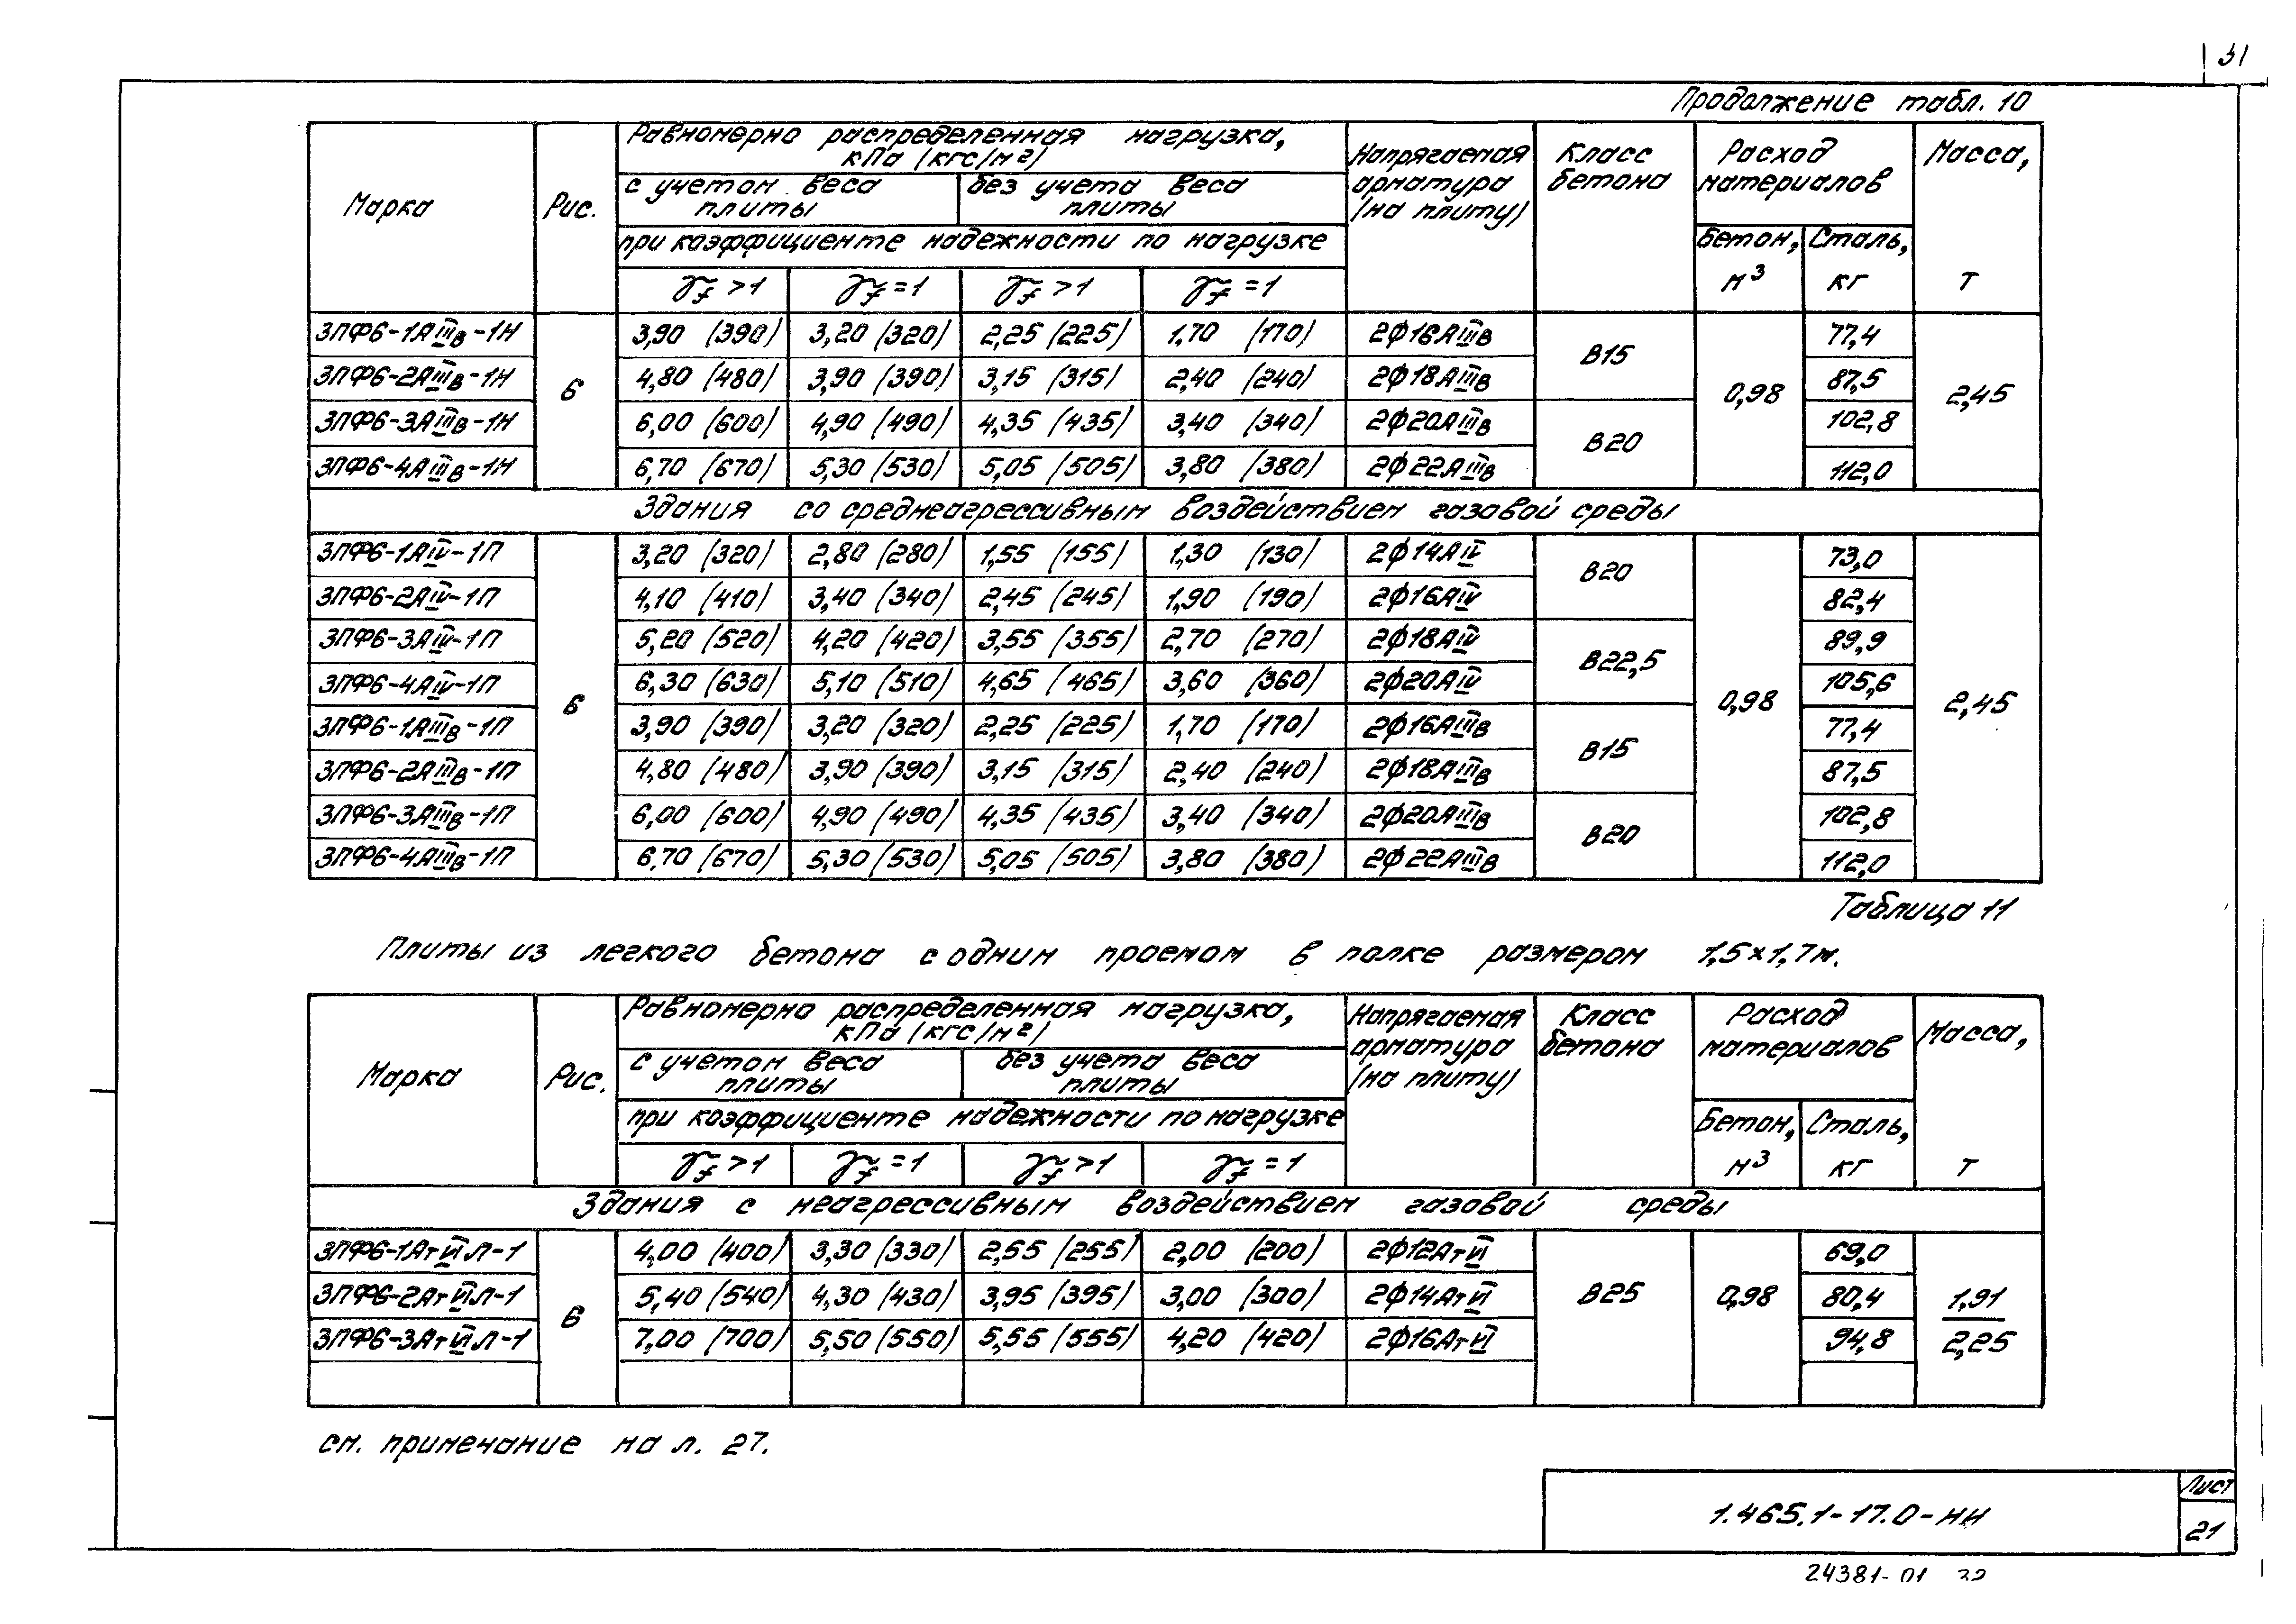 31
Продолжение табл. 10
Марка Рис. Равномерно распределенная нагрузка, кПа (кгс/м²) Напрягаемая арматура (на плиту) Класс бетона Расход материалов Масса, т
с учетом веса плиты без учета веса плиты
при коэффициенте надежности по нагрузке Бетон, м³ Сталь, кг
γf >1 γf =1 γf >1 γf =1
3ПФ6-1АIIIв-1Н 6 3,90 (390) 3,20 (320) 2,25 (225) 1,70 (170) 2ф16АIIIв В15 0,98 77,4 2,45
3ПФ6-2АIIIв-1Н 4,80 (480) 3,90 (390) 3,15 (315) 2,40 (240) 2ф18АIIIв 87,5
3ПФ6-3АIIIв-1Н 6,00 (600) 4,90 (490) 4,35 (435) 3,40 (340) 2ф20АIIIв В20 102,8
3ПФ6-4АIIIв-1Н 6,70 (670) 5,30 (530) 5,05 (505) 3,80 (380) 2ф22АIIIв 112,0
Здания со среднеагрессивным воздействием газовой среды
3ПФ6-1АIV-1П 6 3,20 (320) 2,80 (280) 1,55 (155) 1,30 (130) 2ф14АIV В20 0,98 73,0 2,45
3ПФ6-2АIV-1П 4,10 (410) 3,40 (340) 2,45 (245) 1,90 (190) 2ф16АIV 82,4
3ПФ6-3АIV-1П 5,20 (520) 4,20 (420) 3,55 (355) 2,70 (270) 2ф18АIV В22,5 89,9
3ПФ6-4АIV-1П 6,30 (630) 5,10 (510) 4,65 (465) 3,60 (360) 2ф20АIV 105,6
3ПФ6-1АIIIв-1П 3,90 (390) 3,20 (320) 2,25 (225) 1,70 (170) 2ф16АIIIв В15 77,4
3ПФ6-2АIIIв-1П 4,80 (480) 3,90 (390) 3,15 (315) 2,40 (240) 2ф18АIIIв 87,5
3ПФ6-3АIIIв-1П 6,00 (600) 4,90 (490) 4,35 (435) 3,40 (340) 2ф20АIIIв В20 102,8
3ПФ6-4АIIIв-1П 6,70 (670) 5,30 (530) 5,05 (505) 3,80 (380) 2ф22АIIIв 112,0
Таблица 11
Плиты из легкого бетона с одним проемом в полке размером 1,5×1,7м.
Марка Рис. Равномерно распределенная нагрузка, кПа (кгс/м²) Напрягаемая арматура (на плиту) Класс бетона Расход материалов Масса, т
с учетом веса плиты без учета веса плиты
при коэффициенте надежности по нагрузке Бетон, м³ Сталь, кг
γf >1 γf =1 γf >1 γf =1
Здания с неагрессивным воздействием газовой среды
3ПФ6-1АтVIЛ-1 6 4,00 (400) 3,30 (330) 2,55 (255) 2,00 (200) 2ф12АтVI В25 0,98 69,0 1,91
3ПФ6-2АтVIЛ-1 5,40 (540) 4,30 (430) 3,95 (395) 3,00 (300) 2ф14АтVI 80,4 2,25
3ПФ6-3АтVIЛ-1 7,00 (700) 5,50 (550) 5,55 (555) 4,20 (420) 2ф16АтVI 94,8
см. примечание на л. 27.
1.465.1-17.0-НИ
Лист
21
24381-01 32